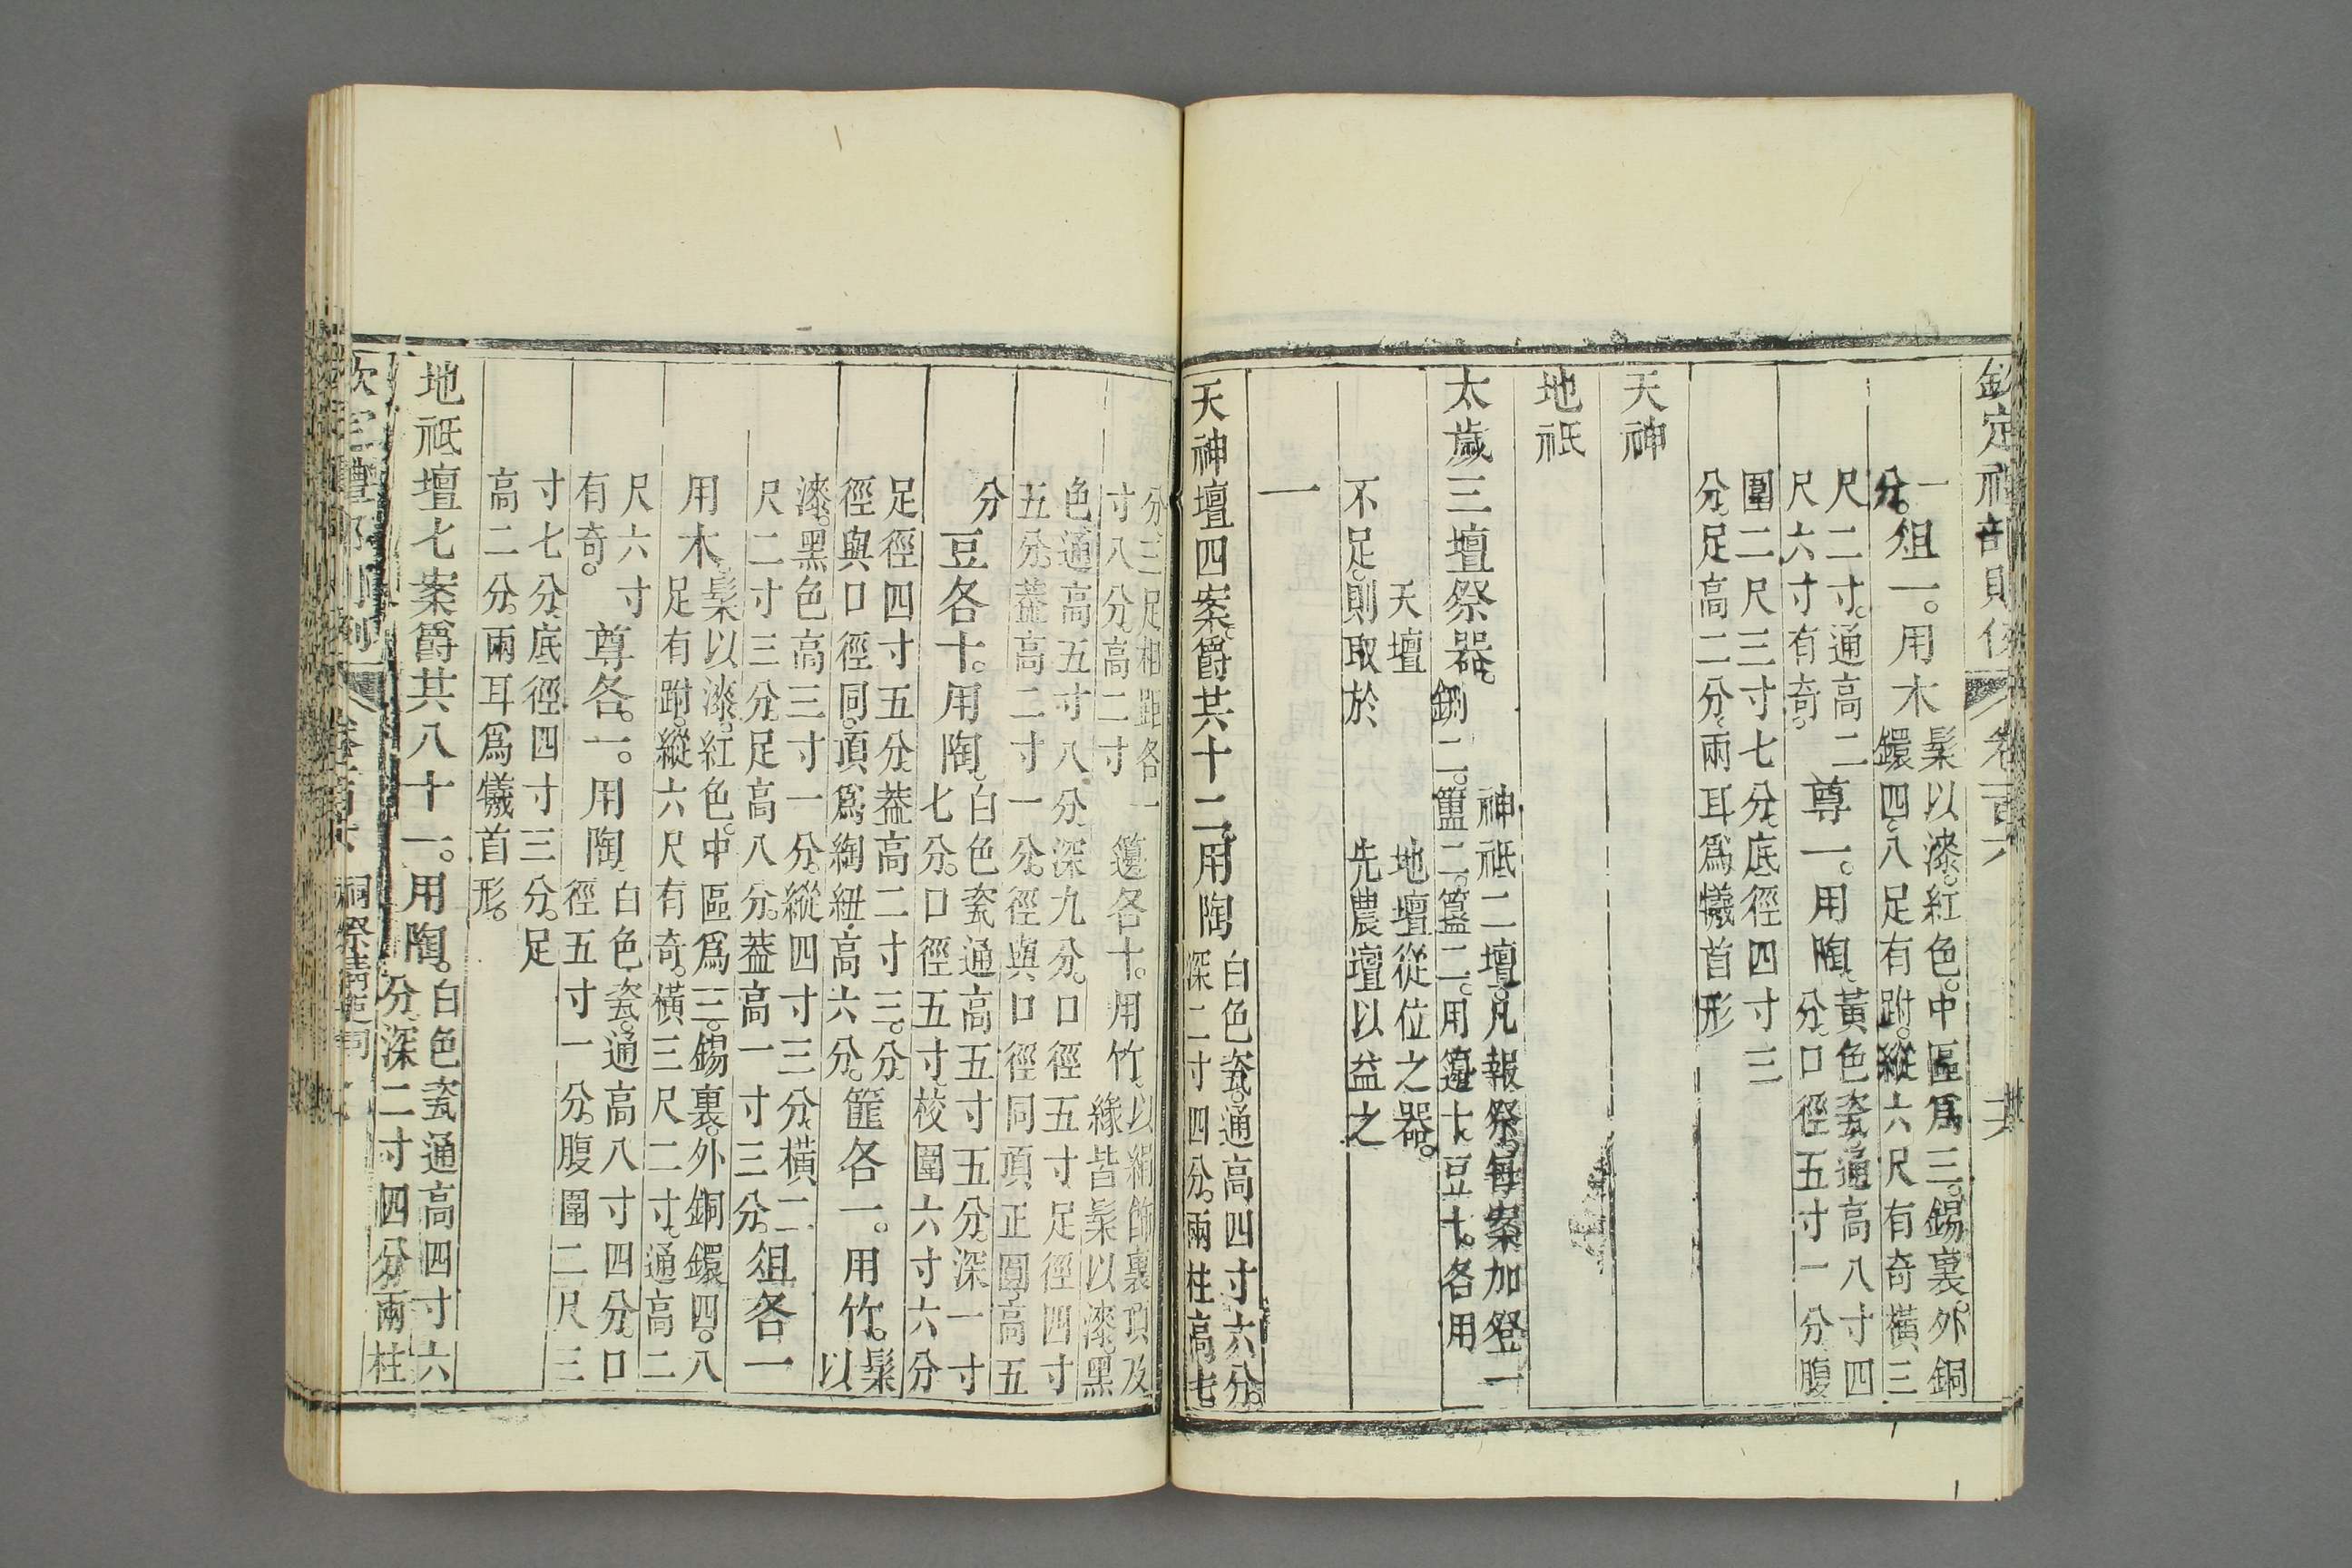 欽定禮部則例 卷百六
一
分。俎一。用木髹以漆。紅色。中區爲三。錫裏。外銅
鐶四。八足有跗。縱六尺有奇橫三
尺二寸。通高二尺六寸有奇。尊一。用陶。黃色瓷通高八寸四
分。口徑五寸一分腹
圍二尺三寸七分。底徑四寸三
分。足高二分。兩耳爲犧首形
天神
地祇
太歲三壇祭器。神祇二壇。凡報祭。每案加登一
鉶二。簠二。簋二。用籩十。豆十。各用
天壇 地壇從位之器。
不足。則取於 先農壇以益之
一
天神壇四案。爵共十二用陶白色瓷。通高四寸六分。
深二寸四分。兩柱高七
分。三足相距各一
寸八分。高二寸籩各十。用竹。以絹飾裏頂及
緣。皆髹以漆。黑
色通高五寸八分深九分。口徑五寸足徑四寸
五分。蓋高二寸一分。徑與口徑同頂正圓。高五
分豆各十。用陶。白色瓷通高五寸五分。深一寸
七分。口徑五寸。校圍六寸六分
足徑四寸五分。蓋高二寸三分。
徑與口徑同。頂爲綯紐。高六分。篚各一。用竹。髹
以
漆。黑色高三寸一分。縱四寸三分。橫二
尺二寸三分。足高八分。蓋高一寸三分。俎各一
用木。髹以漆。紅色。中區爲三。錫裏。外銅鐶四。八
足有跗。縱六尺有奇。橫三尺二寸。通高二
尺六寸
有奇。尊各。一。用陶白色瓷。通高八寸四分。口
徑五寸一分。腹圍二尺三
寸七分。底徑四寸三分。足
高二分。兩耳爲犧首形。
地祇壇七案爵共八十一。用陶。白色瓷通高四寸六
分。深二寸四分兩柱